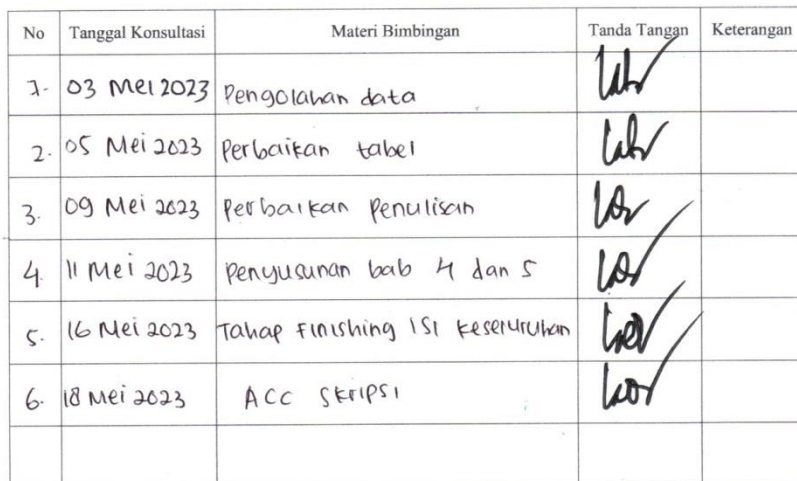 No Tanggal Konsultasi Materi Bimbingan Tanda Tangan Keterangan
1. 03 Mei 2023 Pengolahan data
2. 05 Mei 2023 Perbaikan tabel
3. 09 Mei 2023 Perbaikan Penulisan
4. 11 Mei 2023 Penyusunan bab 4 dan 5
5. 16 Mei 2023 Tahap Finishing ISI keseruruhan
6. 18 Mei 2023 ACC Skripsi